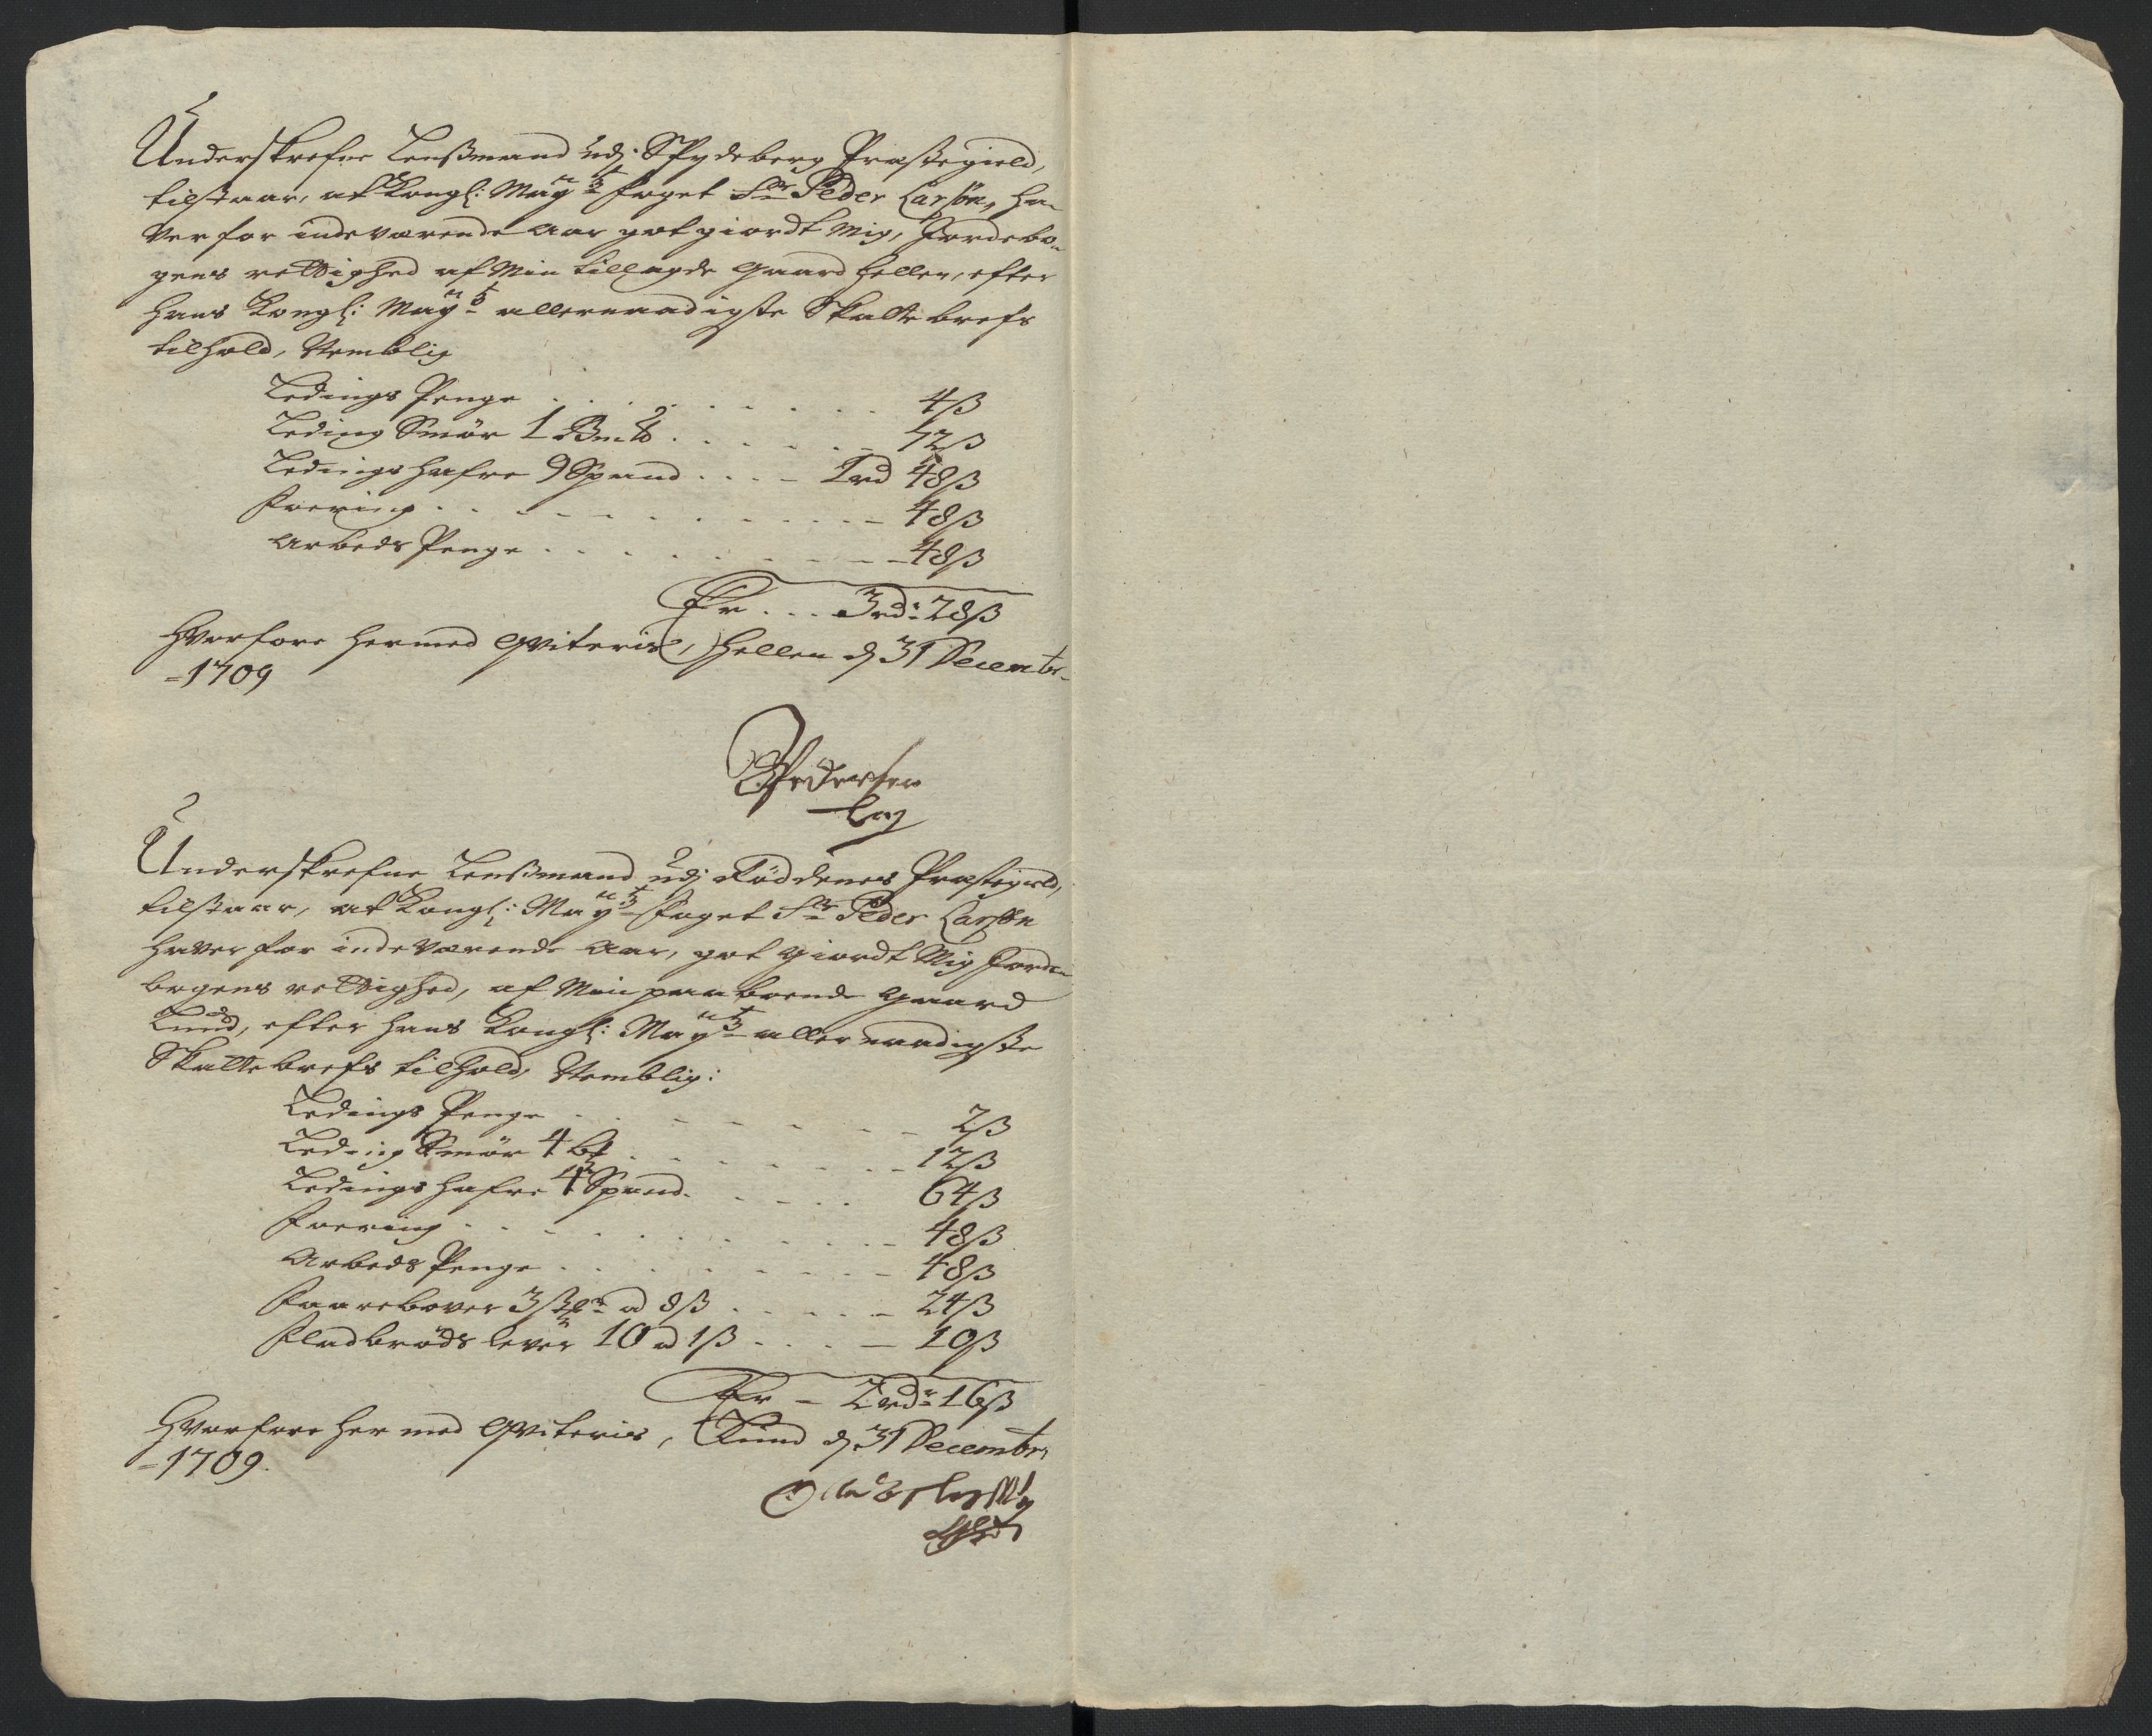 Underskrefne Lensßmand udj Spydeberg Præstegield,
tilstaar, at Kongl: Mayts foget Sr Peder Larsøn, ha-
ver for indeværende Aar got giordt Mig, Jordebo-
gens rettighed af Min tillagde Gaard Hellen, efter
Hans Kongl: Mayts allernaadigste Skatte brefs
tilhold, Nemblig
Ledings Penge . . . 4ß
Leding Smør 1 . . . 72ß
Ledings hafre 9 Spand . . . 1rd 48ß
Foering . . . 48ß
Arbeds Penge . . . 48ß
Er . . . 3rd: 28ß
Hvorfore hermed Qviteris, Hellen d 31 Decembr
-1709
Pedersen
Underskrefne Lensßmand udj Røddenes Præstegield,
tilstaar, at Kongl: Mayts foget Sr Peder Larsøn
haver for indeværende Aar, got giordt Mig Jorde-
bogens rettighed, af Min paaboende Gaard
Lund, efter Hans Kongl: Mayts allernaadigste
Skattebrefs tilhold, Nemblig:
Ledings Penge . . . 2ß
Leding Smør 4 . . . 12ß
Ledings hafre 4 Spand . . . 64ß
Foering . . . 48ß
Arbeds Penge . . . 48ß
Faarebover 3 a 8ß . . . 24ß
Fladbrøds lever 10 a 1ß . . . 10ß
Er - 2rd: 16ß
Hvorfore her med Qviteris, Lund d 31 Decembr
-1709.